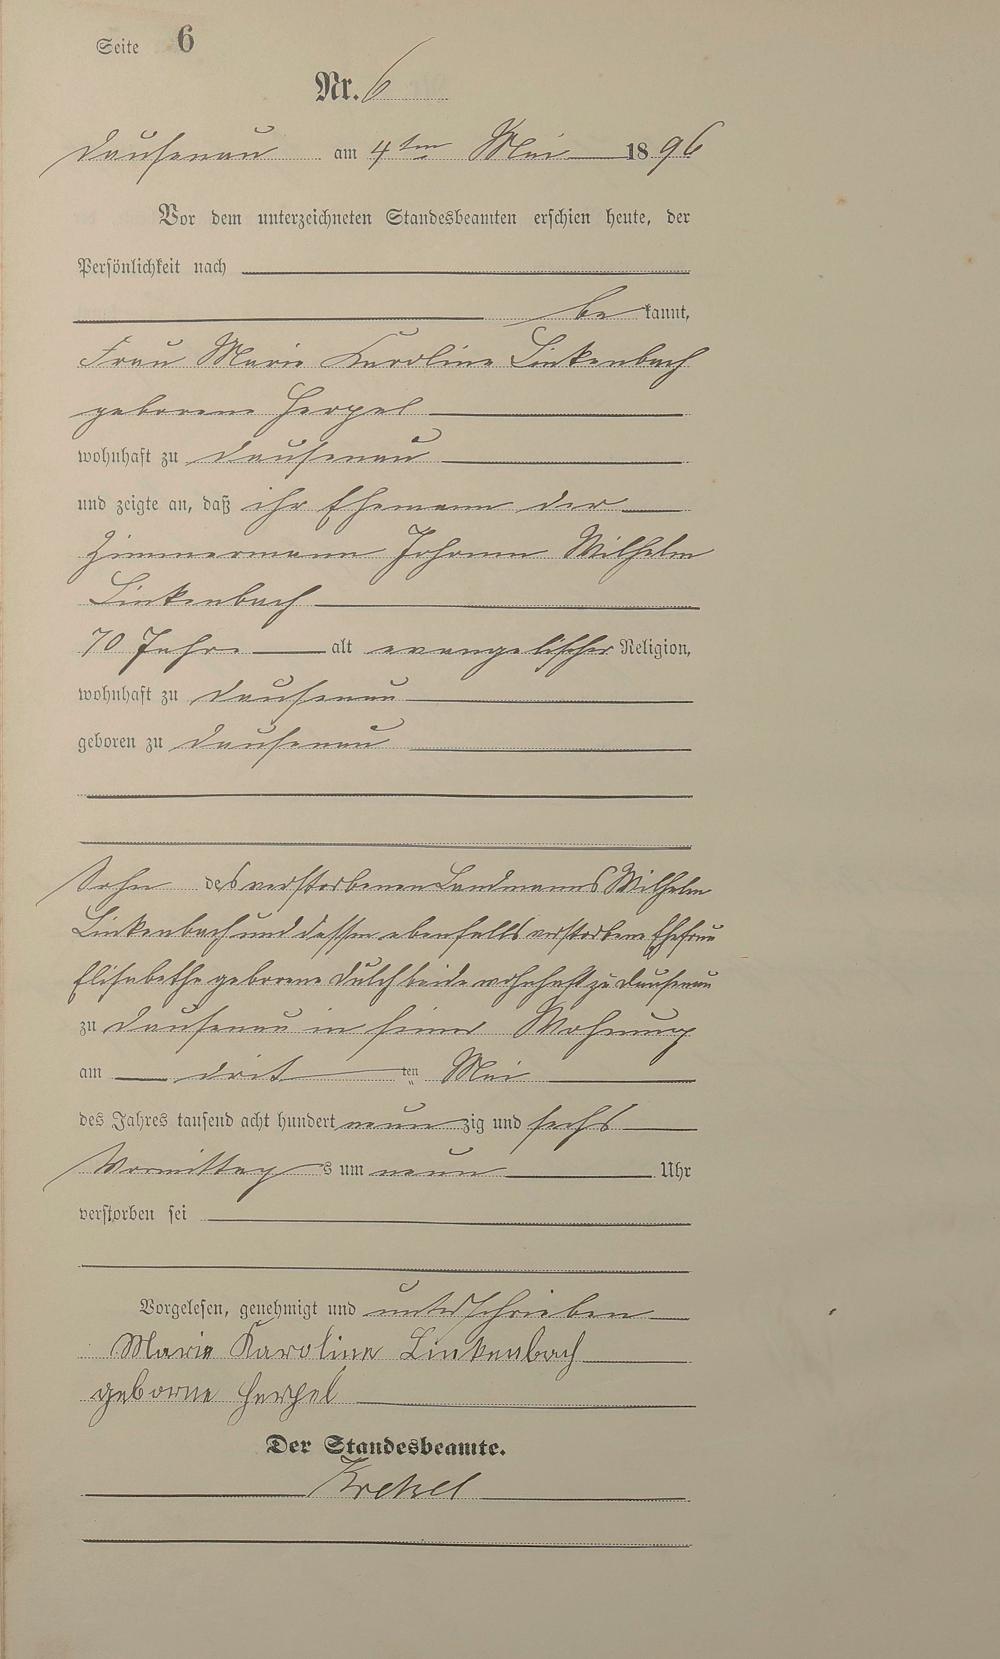 Seite 6
Nr. 6
Dausenau am 4ten Mai 1896
Vor dem unterzeichneten Standesbeamten erschien heute, der
Persönlichkeit nach
bekannt,
Frau Marie Karoline Linkenbach
geborene Herpel
wohnhaft zu Dausenau
und zeigte an, daß ihr Ehemann der
Zimmermann Johann Wilhelm
Linkenbach
70 Jahre alt evangelischer Religion,
wohnhaft zu Dausenau
geboren zu Dausenau
Sohn des verstorbenen Landmanns Wilhelm
Linkenbach und dessen ebenfalls verstorbene Ehefrau
Elisabethe geborene beide wohnhaft zu Dausenau
zu Dausenau in seiner Wohnung
am dritten Mai
des Jahres tausend acht hundert neunzig und sechs
Vormittags um neun Uhr
verstorben sei
Vorgelesen, genehmigt und unterschrieben
Marie Karoline Linkenbach
geborne Herpel
Der Standesbeamte.